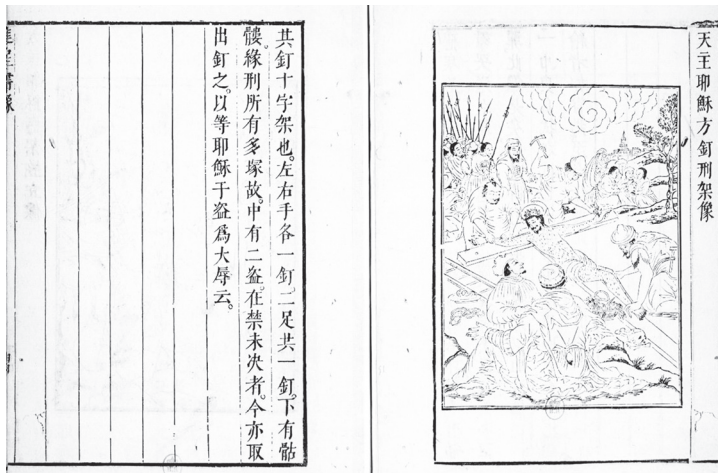 天主耶穌方釘刑架像
共釘十字架也。左右手各一釘。二足共一釘。下有骷
髏。緣刑所有多塚故。中有二盜。在禁未决者。今亦取
出釘之。以等耶穌于盜爲大辱云。